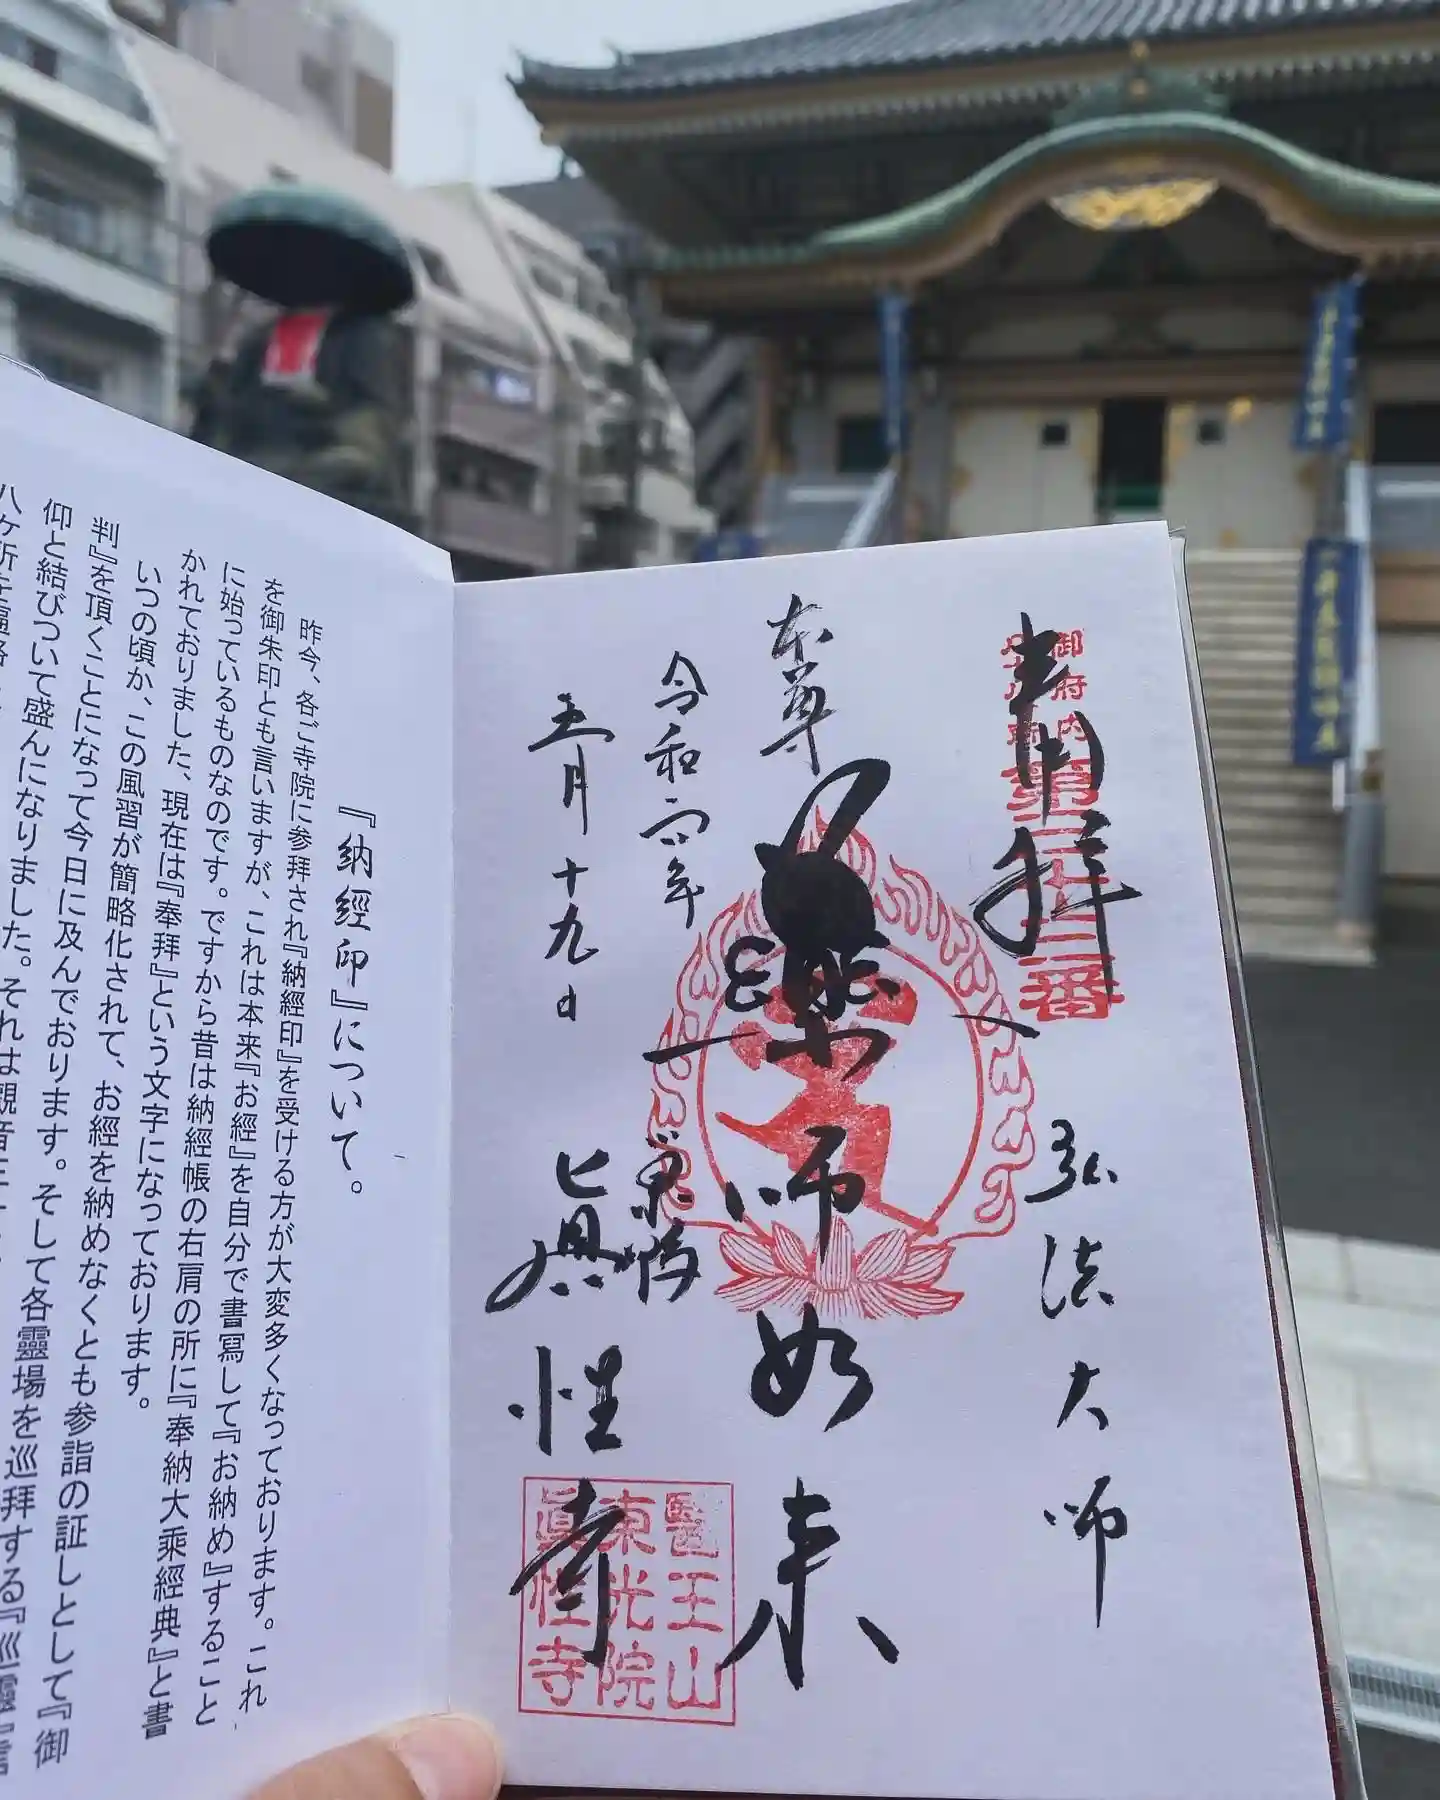 奉拝
御府内
八十八ヶ所
第三十三番
弘法大師
本尊
薬師如来
令和四年
五月十九日
東京
眞性寺
醫王山
東光院
眞性寺
『納經印』について。
昨今、各ご寺院に参拜され『納經印』を受ける方が大変多くなっております。これ
を御朱印とも言いますが、これは本来『お經』を自分で書冩して『お納め』すること
に始っているものなのです。ですから昔は納經帳の右肩の所に『奉納大乘經典』と書
かれておりました、現在は『奉拜』という文字になっております。
いつの頃か、この風習が簡略化されて、お經を納めなくとも参詣の証しとして『御
判』を頂くことになって今日に及んでおります。そして各靈場を巡拜する『巡靈『信
仰と結びついて盛んになりました。それは觀音三十
八ヶ所を遍路